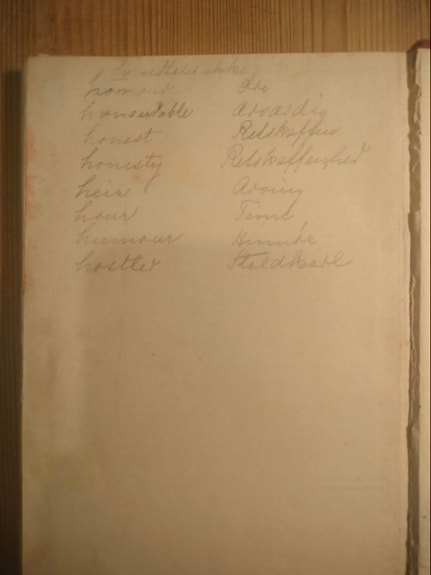 honour Ære
honourable Ærværdig
honest Retskaffen
honesty Retskaffenhed
heir Arving
hour Time
humour Humør
hostler Staldkarl